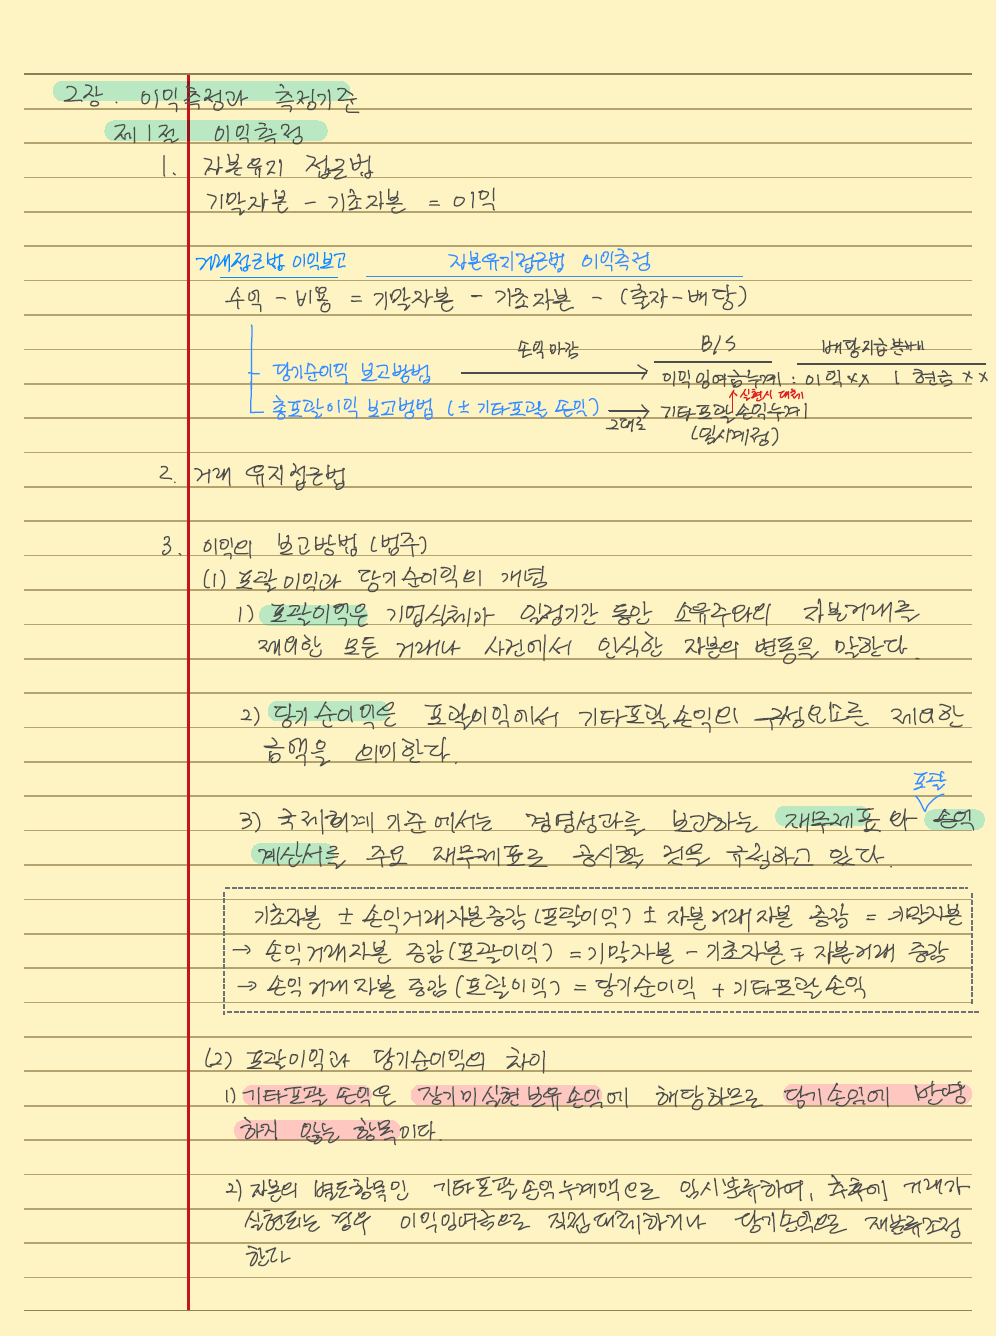 2장. 이익측정과 측정기준
제1절 이익측정
1. 자본유지 접근법
기말자본 - 기초자본 = 이익
거래접근법 이익보고 자본유지접근법 이익측정
수익 - 비용 = 기말자본 - 기초자본 - (출자-배당)
손익마감 B/S 배당지급분배
당기순이익 보고방법 → 이익잉여금누계 : 이익×× | 현금 ××
↑실현시 대체
총포괄이익 보고방법 (± 기타포괄 손익) → 기타포괄손익누계
그대로 (임시계정)
2. 거래 유지접근법
3. 이익의 보고방법 (범주)
(1) 포괄이익과 당기순이익의 개념
1) 포괄이익은 기업실체가 일정기간 동안 소유주와의 자본거래를
제외한 모든 거래나 사건에서 인식한 자본의 변동을 말한다.
2) 당기순이익은 포괄이익에서 기타포괄손익의 구성요소를 제외한
금액을 의미한다.
포괄
3) 국제회계기준에서는 경영성과를 보고하는 재무제표와 손익
계산서를 주요 재무제표로 공시할 것을 규정하고 있다.
기초자본 ± 손익거래자본증감(포괄이익) ± 자본거래자본 증감 = 기말자본
→ 손익거래자본 증감(포괄이익) = 기말자본 - 기초자본 ∓ 자본거래 증감
→ 손익거래자본 증감(포괄이익) = 당기순이익 + 기타포괄손익
(2) 포괄이익과 당기순이익의 차이
1) 기타포괄 손익은 장기미실현보유손익에 해당하므로 당기손익에 반영
하지 않는 항목이다.
2) 자본의 별도항목인 기타포괄손익누계액으로 임시분류하여, 추후에 거래가
실현되는 경우 이익잉여금으로 직접대체하거나 당기손익으로 재분류조정
한다